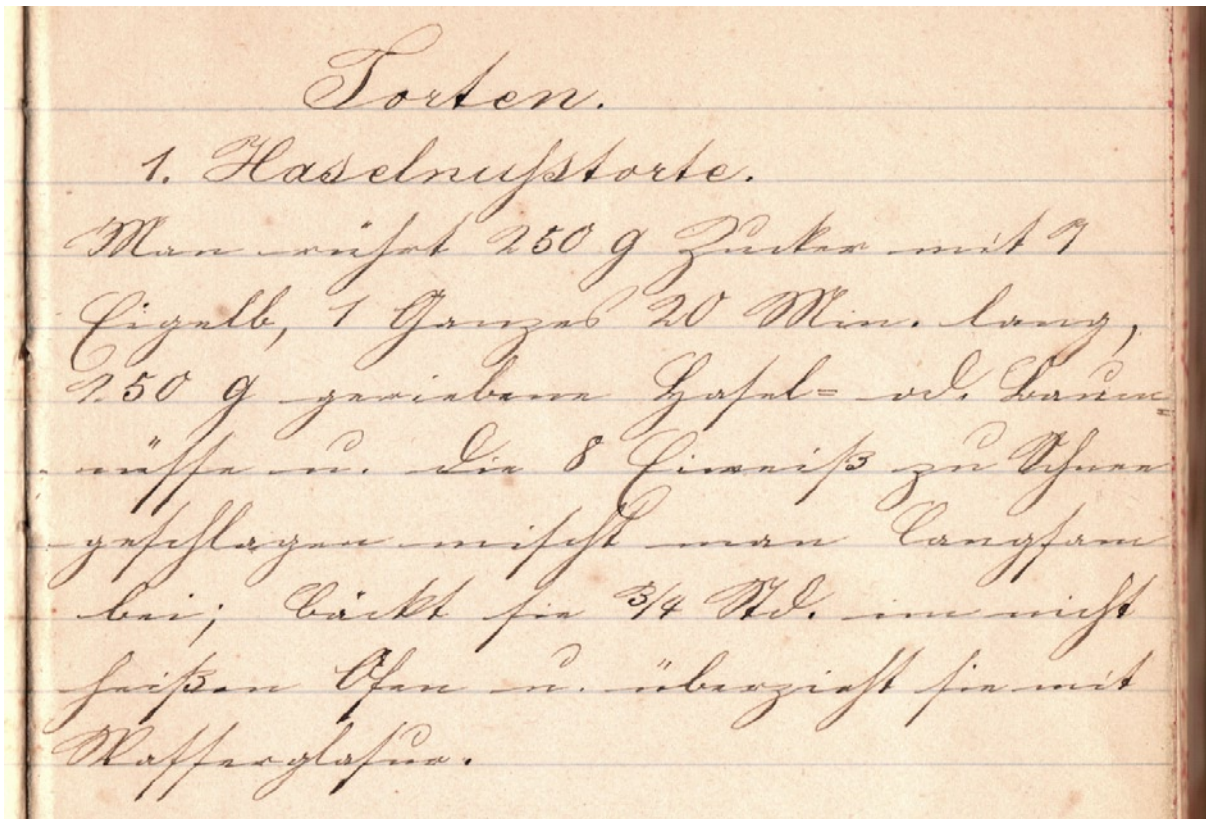 Torten.
1. Haselnußtorte.
Man rührt 250 g Zucker mit 7
Eigelb, 1 Ganzes 20 Min. lang,
250 g geriebene Hasel= od. Baum=
nüsse u. die 8 Eiweiß zu Schnee
geschlagen mischt man langsam
bei; bäckt sie 3/4 Std. im nicht
heißen Ofen u. überzieht sie mit
Wasserglasur.